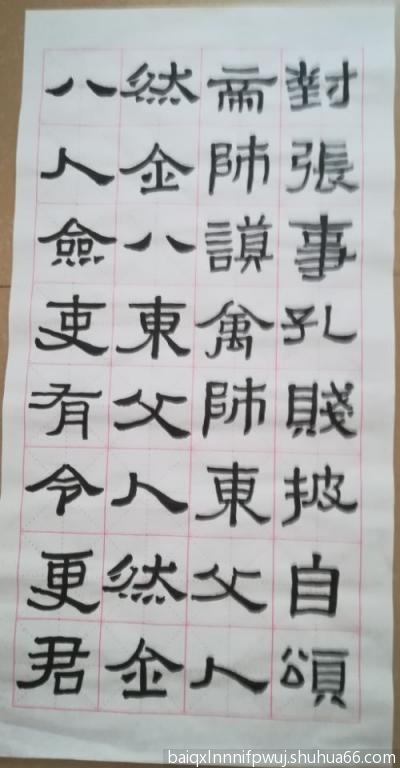 對張事孔賤披自頌
而師謨禽師東父人
然金八東父人然金
八人僉吏有令更君
baiqxlnnnifpwuj.shuhua66.com